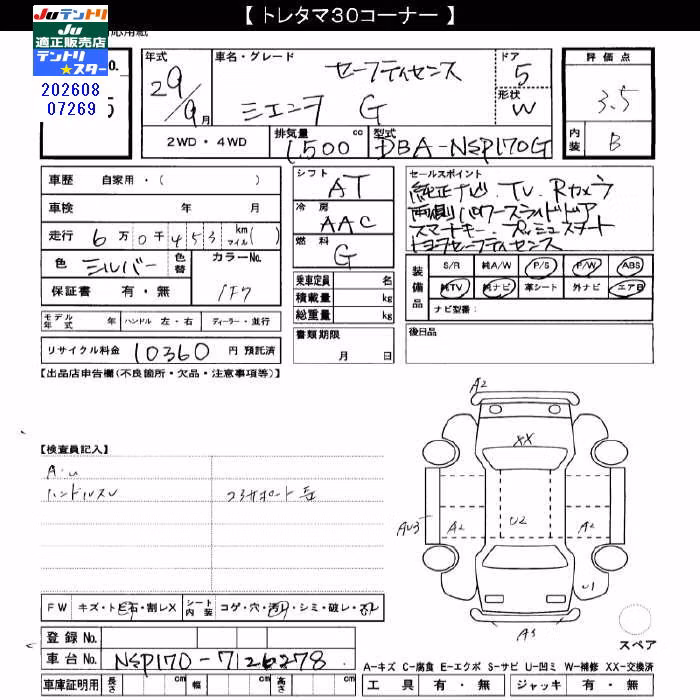 【 トレタマ30コーナー 】
応用紙
Juテントリ
Ju
適正販売店
テントリ
★スター
202608
07269
5
年式
29/9月
車名・グレード
セーフティセンス
シエンタ G
ドア
5
形状
W
評価点
3.5
内装
B
2WD・4WD
排気量
1500 cc
型式
DBA-NSP170G
車歴 自家用・( )
車検 年 月
走行 6万0千453 km マイル( )
色 シルバー 色替 カラーNo.
1F7
保証書 有・無
モデル年式 年 ハンドル 左・右 ディーラー・並行
リサイクル料金 10360 円 預託済
シフト
AT
冷房
AAC
燃料
G
乗車定員 名
積載量 kg
総重量 kg
書類期限
月 日
セールスポイント
純正ナビ.TV.Rカメラ
両側パワースライドドア
スマートキー.プッシュスタート
トヨタセーフティセンス
装備品
S/R 純A/W P/S P/W ABS
純TV 純ナビ 革シート 外ナビ エアB
ナビ型番:
後日品
【出品店申告欄(不良箇所・欠品・注意事項等)】
【検査員記入】
A・U
ハンドルスレ
コアサポート
FW キズ・ト石・割レX シート内装 コゲ・穴・汚レ・シミ・破レ・スレ
登録 No.
車台 No. NSP170-7126278
車庫証明用 長さ cm 幅 cm 高さ cm
A2
XX
AU3
A2
U2
A2
U1
A3
スペア
A-キズ C-腐食 E-エクボ S-サビ U-凹ミ W-補修 XX-交換済
工具 有・無 ジャッキ 有・無